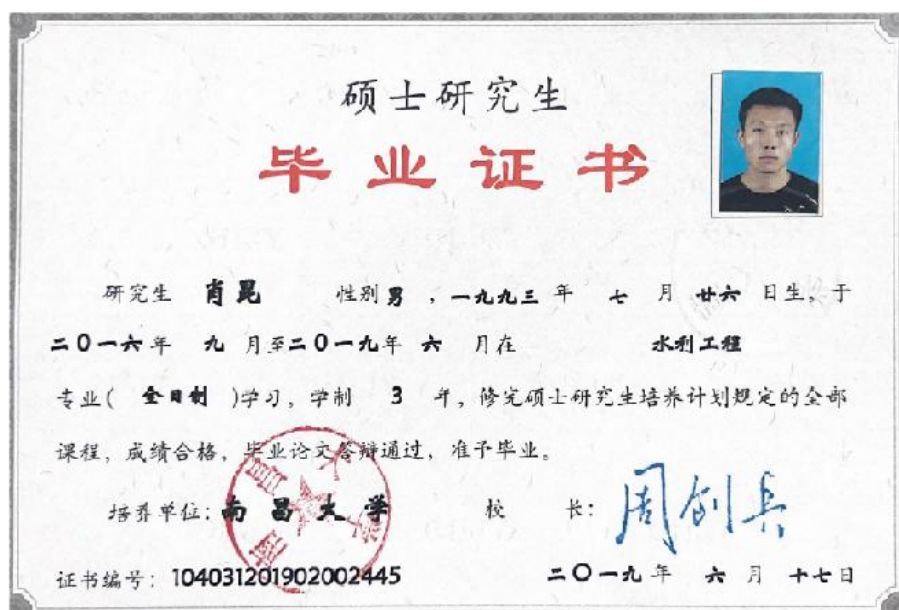 硕士研究生
毕业证书
研究生 肖昆 性别 男 ，一九九三 年 七 月 廿六 日生，于
二〇一六年 九 月至二〇一九年 六 月在 水利工程
专业( 全日制 )学习，学制 3 年，修完硕士研究生培养计划规定的全部
课程，成绩合格，毕业论文答辩通过，准予毕业。
培养单位：南昌大学 校 长：周创兵
证书编号：104031201902002445 二〇一九 年 六 月 十七日